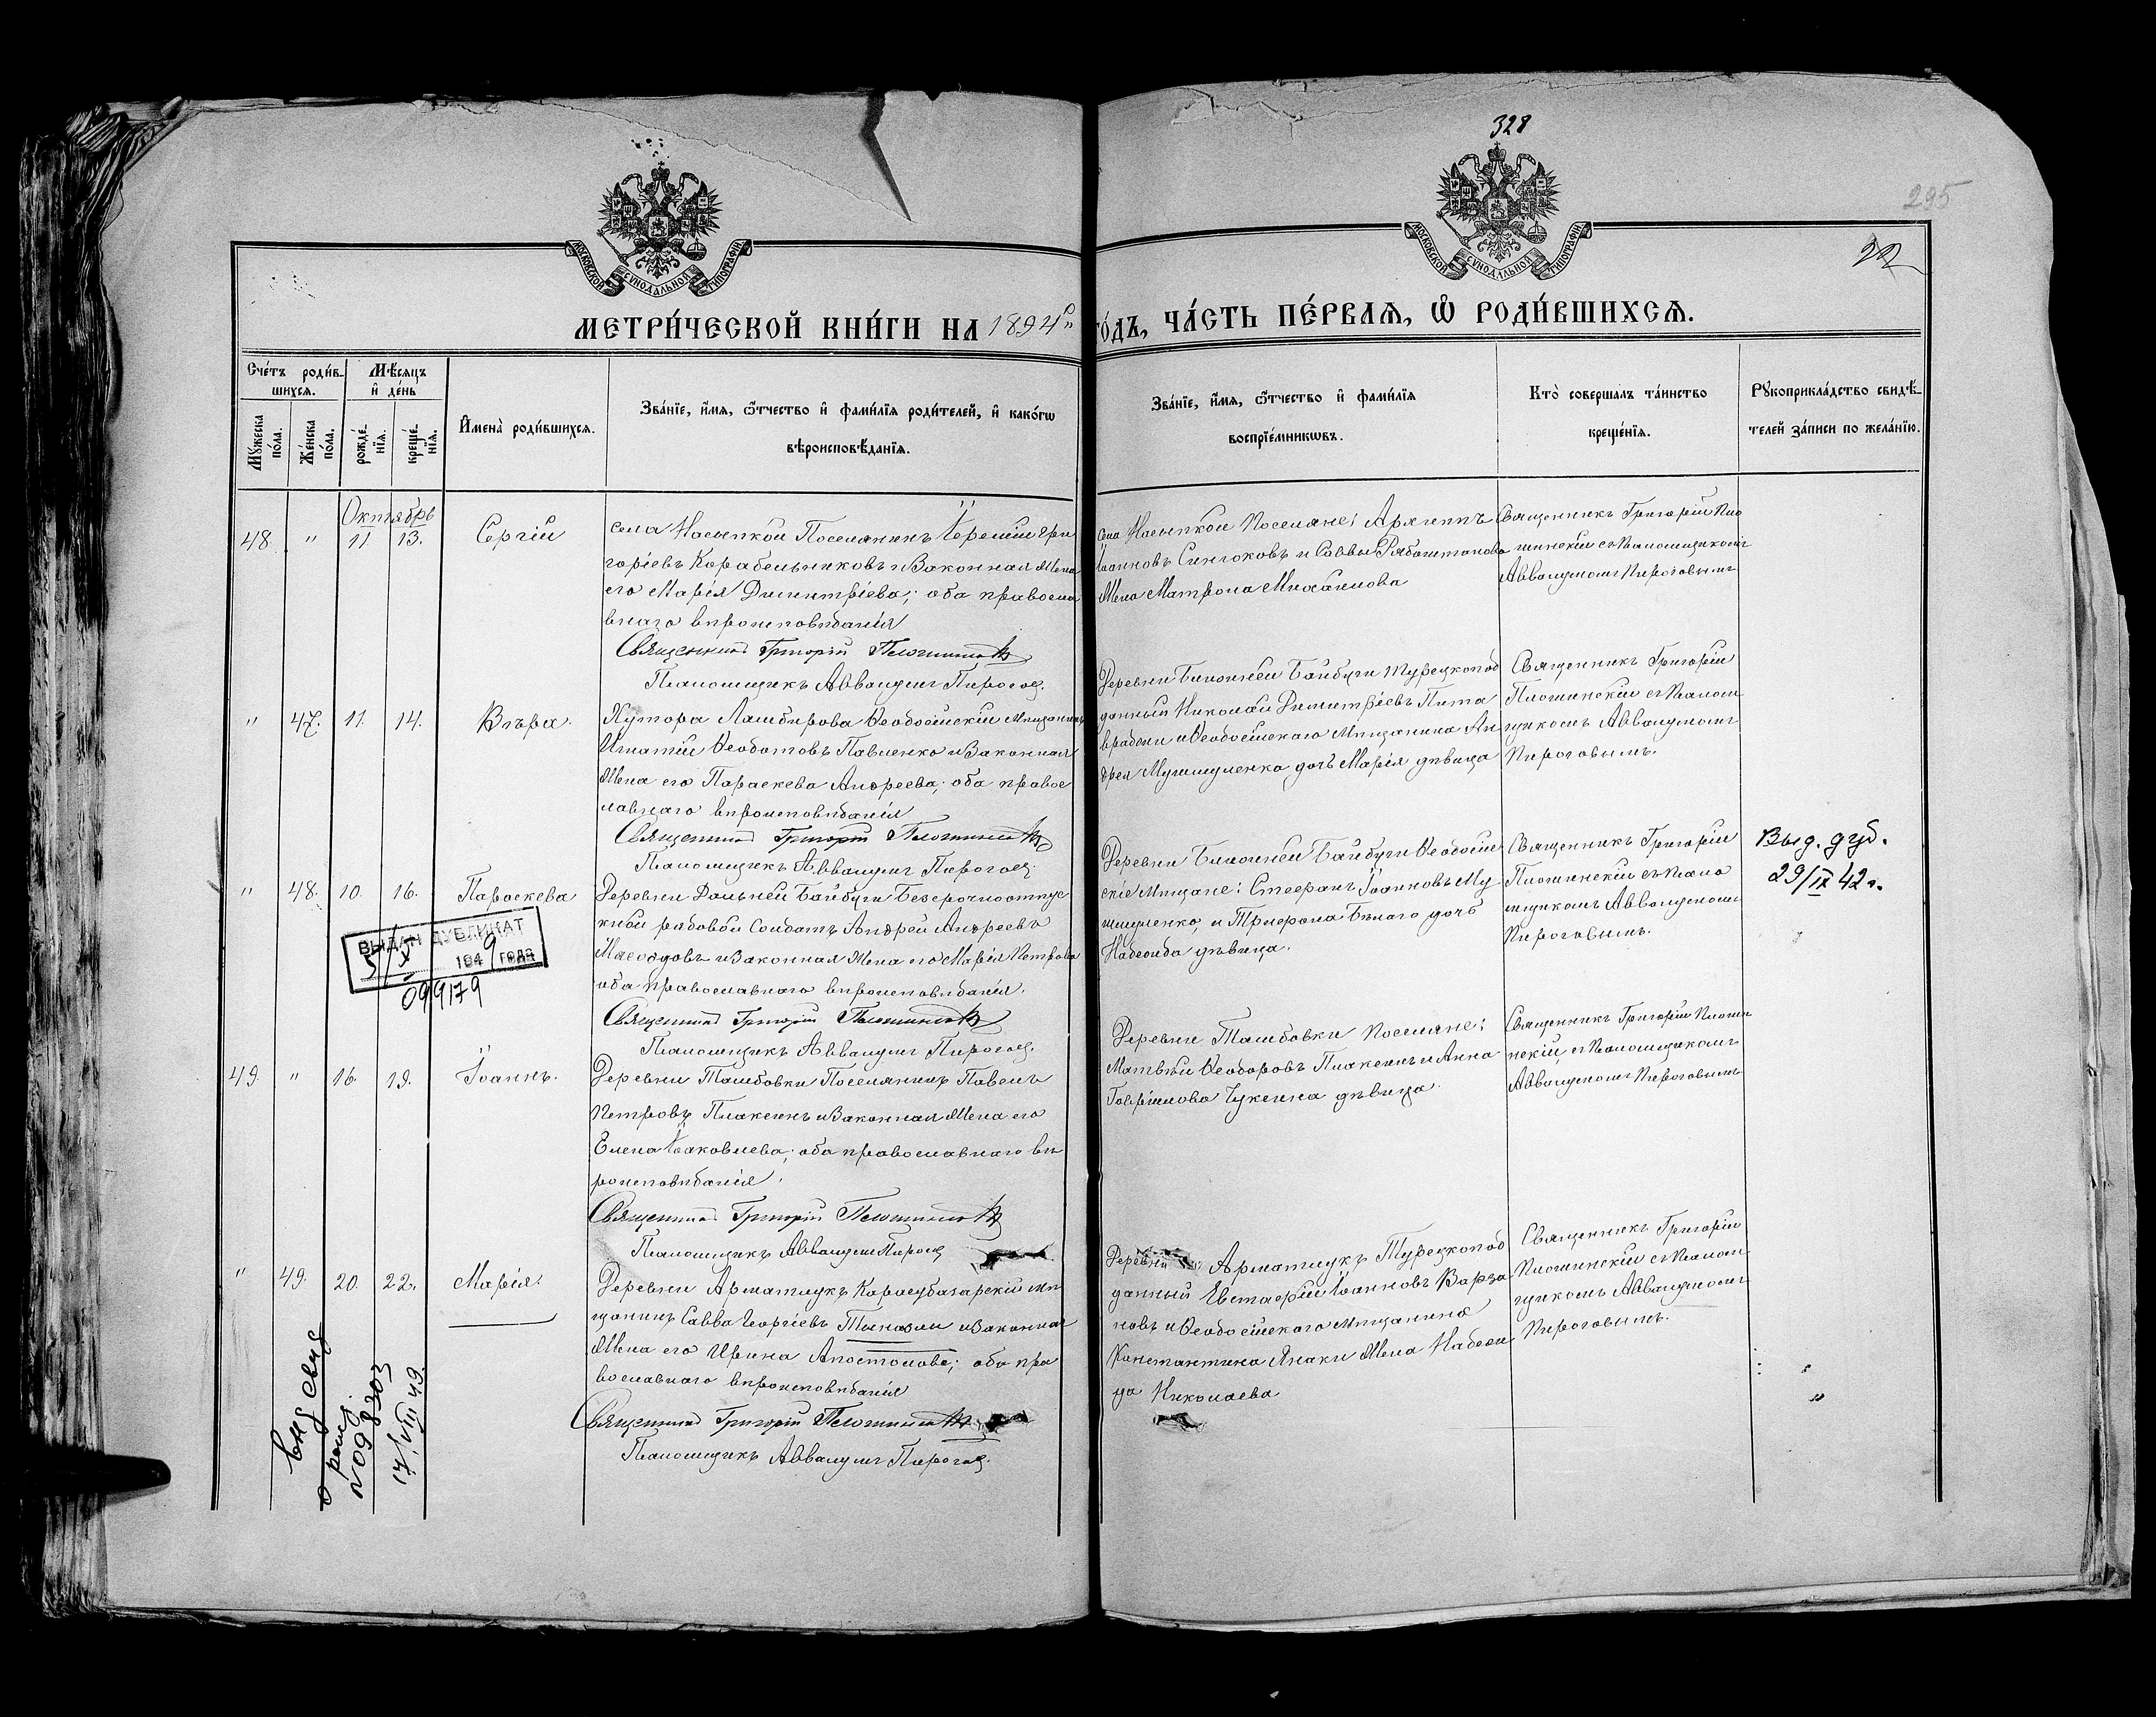 328
295
22
МОСКОВСКОЙ СѴНОДАЛЬНОЙ ТИПОГРАФІИ
МОСКОВСКОЙ СѴНОДАЛЬНОЙ ТИПОГРАФІИ
МЕТРИ́ЧЕСКОЙ КНИ́ГИ НА 1894 го́дъ, ЧА́СТЬ ПЕ́РВАЯ, Ѿ РОДИ́ВШИХСЯ.
Сче́тъ роди́вшихся.
Мѣ́сяцъ и де́нь
Мꙋжеска по́ла.
Же́нска по́ла.
рожде́нїя.
креще́нїя.
И҆мена̀ роди́вшихся.
Зва́нїе, и҆́мя, ѻ҆́тчество и҆ фами́лїя роди́телей, и҆ како́гѡ
вѣроисповѣ́данїя.
Зва́нїе, и҆́мя, ѻ҆́тчество и҆ фами́лїя
воспрїе́мникѡвъ.
Кто̀ совершалъ та́инство
креще́нїя.
Рꙋкоприкла́дство свидѣ́-
телей за́писи по жела́нїю.
Октябрь
48. " 11 13. Сергій
села Насыпкой Поселянинъ Іеремій Гри
горіевъ Корабельниковъ и Законная Жена
его Марія Димитріева; оба правосла
внаго вѣроисповѣданія
Священникъ Григорій
Псаломщикъ Аввакумъ Пирогов.
села Насыпкой Поселяне:
Іоанновъ Синюковъ и Саввы
Жена Матрона Михаилова
Священникъ Григорій
съ Псаломщикомъ
Аввакумомъ Пироговымъ
" 47. 11. 14. Вѣра.
Хутора Ѳеодосійскій Мѣщанинъ
Игнатій Ѳеодотовъ Павленко и Законная
Жена его Параскева Андреева; оба правос
лавнаго вѣроисповѣданія
Священникъ Григорій
Псаломщикъ Аввакумъ Пирогов.
Деревни Ближней Байбуги Турецкопод
данный Николай Димитріевъ
и Ѳеодосійскаго Мѣщанина Ан
дрея дочь Марія дѣвица
Священникъ Григорій
съ Псалом
щикомъ Аввакумомъ
Пироговымъ.
" 48. 10. 16. Параскева
Деревни Дальней Байбуги Безсрочноотпус
кной рядовой Солдатъ Андрей Андреевъ
и Законная Жена его Марія Петрова
оба православнаго вѣроисповѣданія.
Священникъ Григорій
Псаломщикъ Аввакумъ Пирогов.
Деревни Ближней Байбуги Ѳеодосій
скіе Мѣщане: Стефанъ Іоанновъ Му
шуленко, и Трифона Бѣлаго дочь
Надежда дѣвица.
Священникъ Григорій
съ Псало
мщикомъ Аввакумомъ
Пироговымъ.
Выд. дуб.
29/IX 42 г.
ВЫДАН ДУБЛИКАТ
5/X 1949 года
099179
49. " 16. 19. Іоаннъ.
Деревни Ташбовки Поселянинъ Павелъ
Петровъ Плаксинъ и Законная Жена его
Елена Іаковлева; оба православнаго вѣ
роисповѣданія.
Священникъ Григорій
Псаломщикъ Аввакумъ Пирогов
Деревни Ташбовки Поселяне:
Матвѣй Ѳеодоровъ Плаксинъ и Анна
Гавріилова Чуксина дѣвица.
Священникъ Григорій
съ Псаломщикомъ
Аввакумомъ Пироговымъ
" 49. 20. 22. Марія.
Деревни Арматлукъ Карасубазарскій мѣ
щанинъ Савва Георгіевъ и Законная
Жена его Ирина Апостолова; оба пра
вославнаго вѣроисповѣданія
Священникъ Григорій
Псаломщикъ Аввакумъ Пирогов.
Деревни Арматлукъ Турецкопод
данный Евстафій Іоанновъ Варза
новъ и Ѳеодосійскаго Мѣщанина
Константина Янаки Жена Надеж
да Николаева
Священникъ Григорій
съ Псалом
щикомъ Аввакумомъ
Пироговымъ.
о рожд
№098303
17/VIII 49.